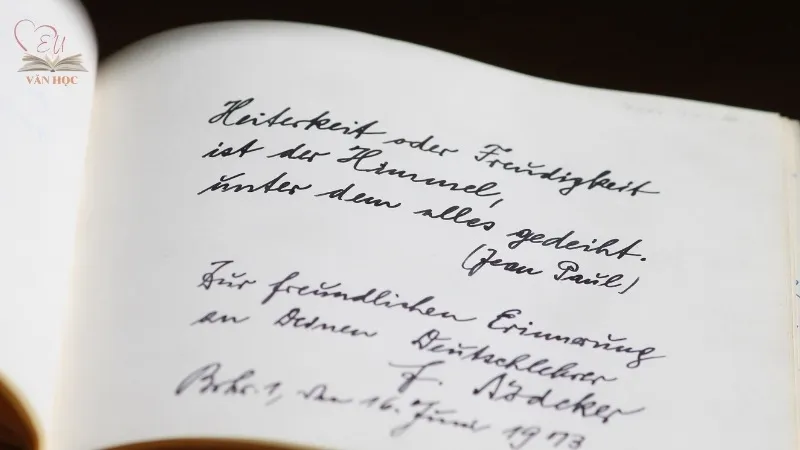 EU
VĂN HỌC
Heiterkeit oder Freudigkeit
ist der Himmel,
unter dem alles gedeiht.
(Jean Paul)
Zur freundlichen Erinnerung
an Deinen Deutschlehrer
den 16. Juni 1973